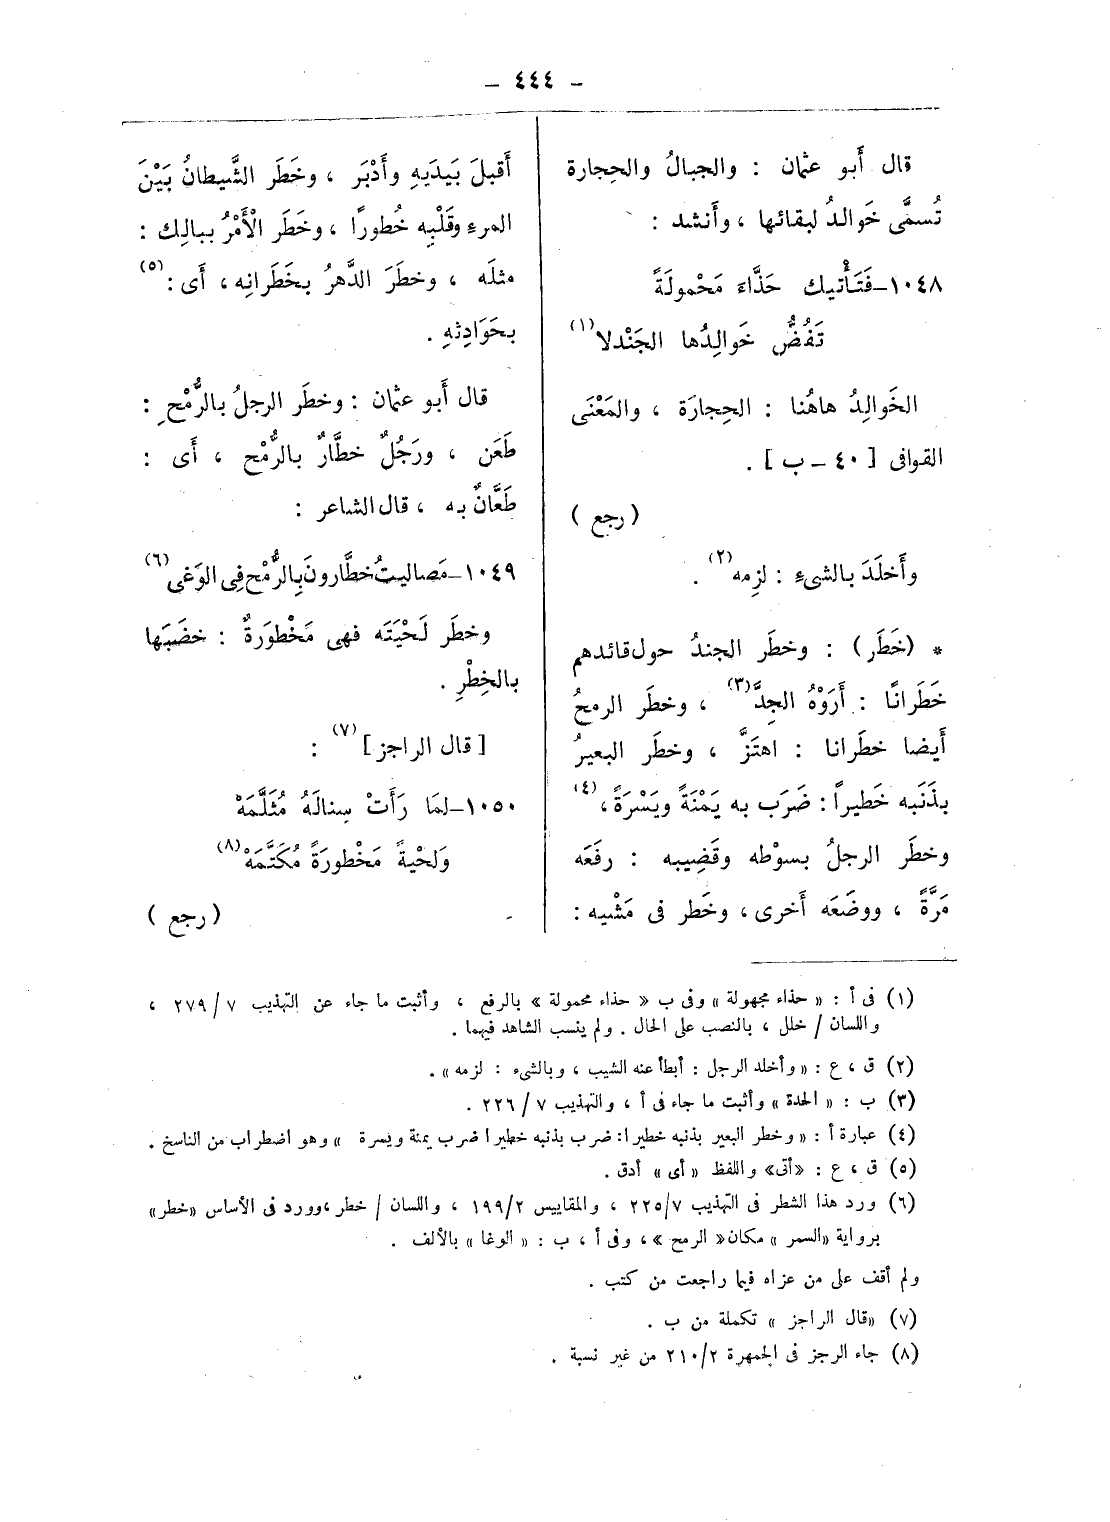 - ٤٤٤ -
قال أَبو عثمان : والجبالُ والحِجارة
تُسمَّى خَوالدُ لبقائها ، وأَنشد :
١٠٤٨-فَتَأْتيك حَذَّاءَ مَحْمولَةً
تَفُضُّ خَوالِدُها الجَنْدلا (١)
الخَوالِدُ هاهُنا : الحِجارَة ، والمَعْنَى
القوافى [ ٤٠ - ب ] .
( رجع )
وأَخلَدَ بالشىءِ : لزِمه (٢) .
* (خَطَر) : وخطَر الجندُ حول قائدهم
خَطَرانًا : أَرَوْهُ الجِدَّ (٣) ، وخطَر الرمحُ
أَيضا خطَرانا : اهتَزَّ ، وخطَر البعيرُ
بذَنَبه خَطيراً : ضَرَب به يَمْنَةً ويَسْرَةً (٤) ،
وخطَر الرجلُ بسوْطه وقَضِيبه : رفَعَه
مَرَّةً ، ووضَعَه أَخرى ، وخَطر فى مَشْيه :
أَقبلَ بَيدَيهِ وأَدْبَر ، وخَطَر الشَّيطانُ بَيْنَ
المرءِ وقَلْبِه خُطورًا ، وخَطَر الْأَمْرُ ببالِك :
مثلَه ، وخطَرَ الدَّهرُ بخَطَرانِه ، أَى : (٥)
بحَوَادِثهِ .
قال أَبو عثمان : وخطَر الرجلُ بالرُّمْحِ :
طَعَن ، ورَجُلٌ خطَّارٌ بالرُّمْح ، أَى :
طَعَّانٌ به ، قال الشاعر :
١٠٤٩-مَصاليتُ خطَّارونَ بِالرُّمْحِ فِى الوَغَى (٦)
وخطَر لَحْيَتَه فهى مَخْطورَةٌ : خضَبَها
بالخِطْرِ .
[ قال الراجز ] (٧) :
١٠٥٠-لمَا رَأَتْ سِنالَهُ مُثَلَّمَهْ
وَلحْيةً مَخْطورَةً مُكَتَّمَهْ (٨)
( رجع )
(١) فى أ : « حذاء مجهولة » وفى ب « حذاء محمولة » بالرفع ، وأثبت ما جاء عن التهذيب ٧ / ٢٧٩ ،
واللسان / خلل ، بالنصب على الحال . ولم ينسب الشاهد فيهما .
(٢) ق ، ع : « وأخلد الرجل : أبطأ عنه الشيب ، وبالشىء : لزمه » .
(٣) ب : « الحدة » وأثبت ما جاء فى أ ، والتهذيب ٧ / ٢٢٦ .
(٤) عبارة أ : « وخطر البعير بذنبه خطيرا : ضرب بذنبه خطيرا ضرب يمنة ويسرة » وهو اضطراب من الناسخ .
(٥) ق ، ع : «أتى» واللفظ « أى » أدق .
(٦) ورد هذا الشطر فى التهذيب ٧/ ٢٢٥ ، والمقاييس ٢/ ١٩٩ ، واللسان / خطر ، وورد فى الأساس «خطر»
برواية «السمر » مكان« الرمح » ، وفى أ ، ب : « الوغا » بالألف .
ولم أقف على من عزاه فيما راجعت من كتب .
(٧) «قال الراجز » تكملة من ب .
(٨) جاء الرجز فى الجمهرة ٢/ ٢١٠ من غير نسبة .